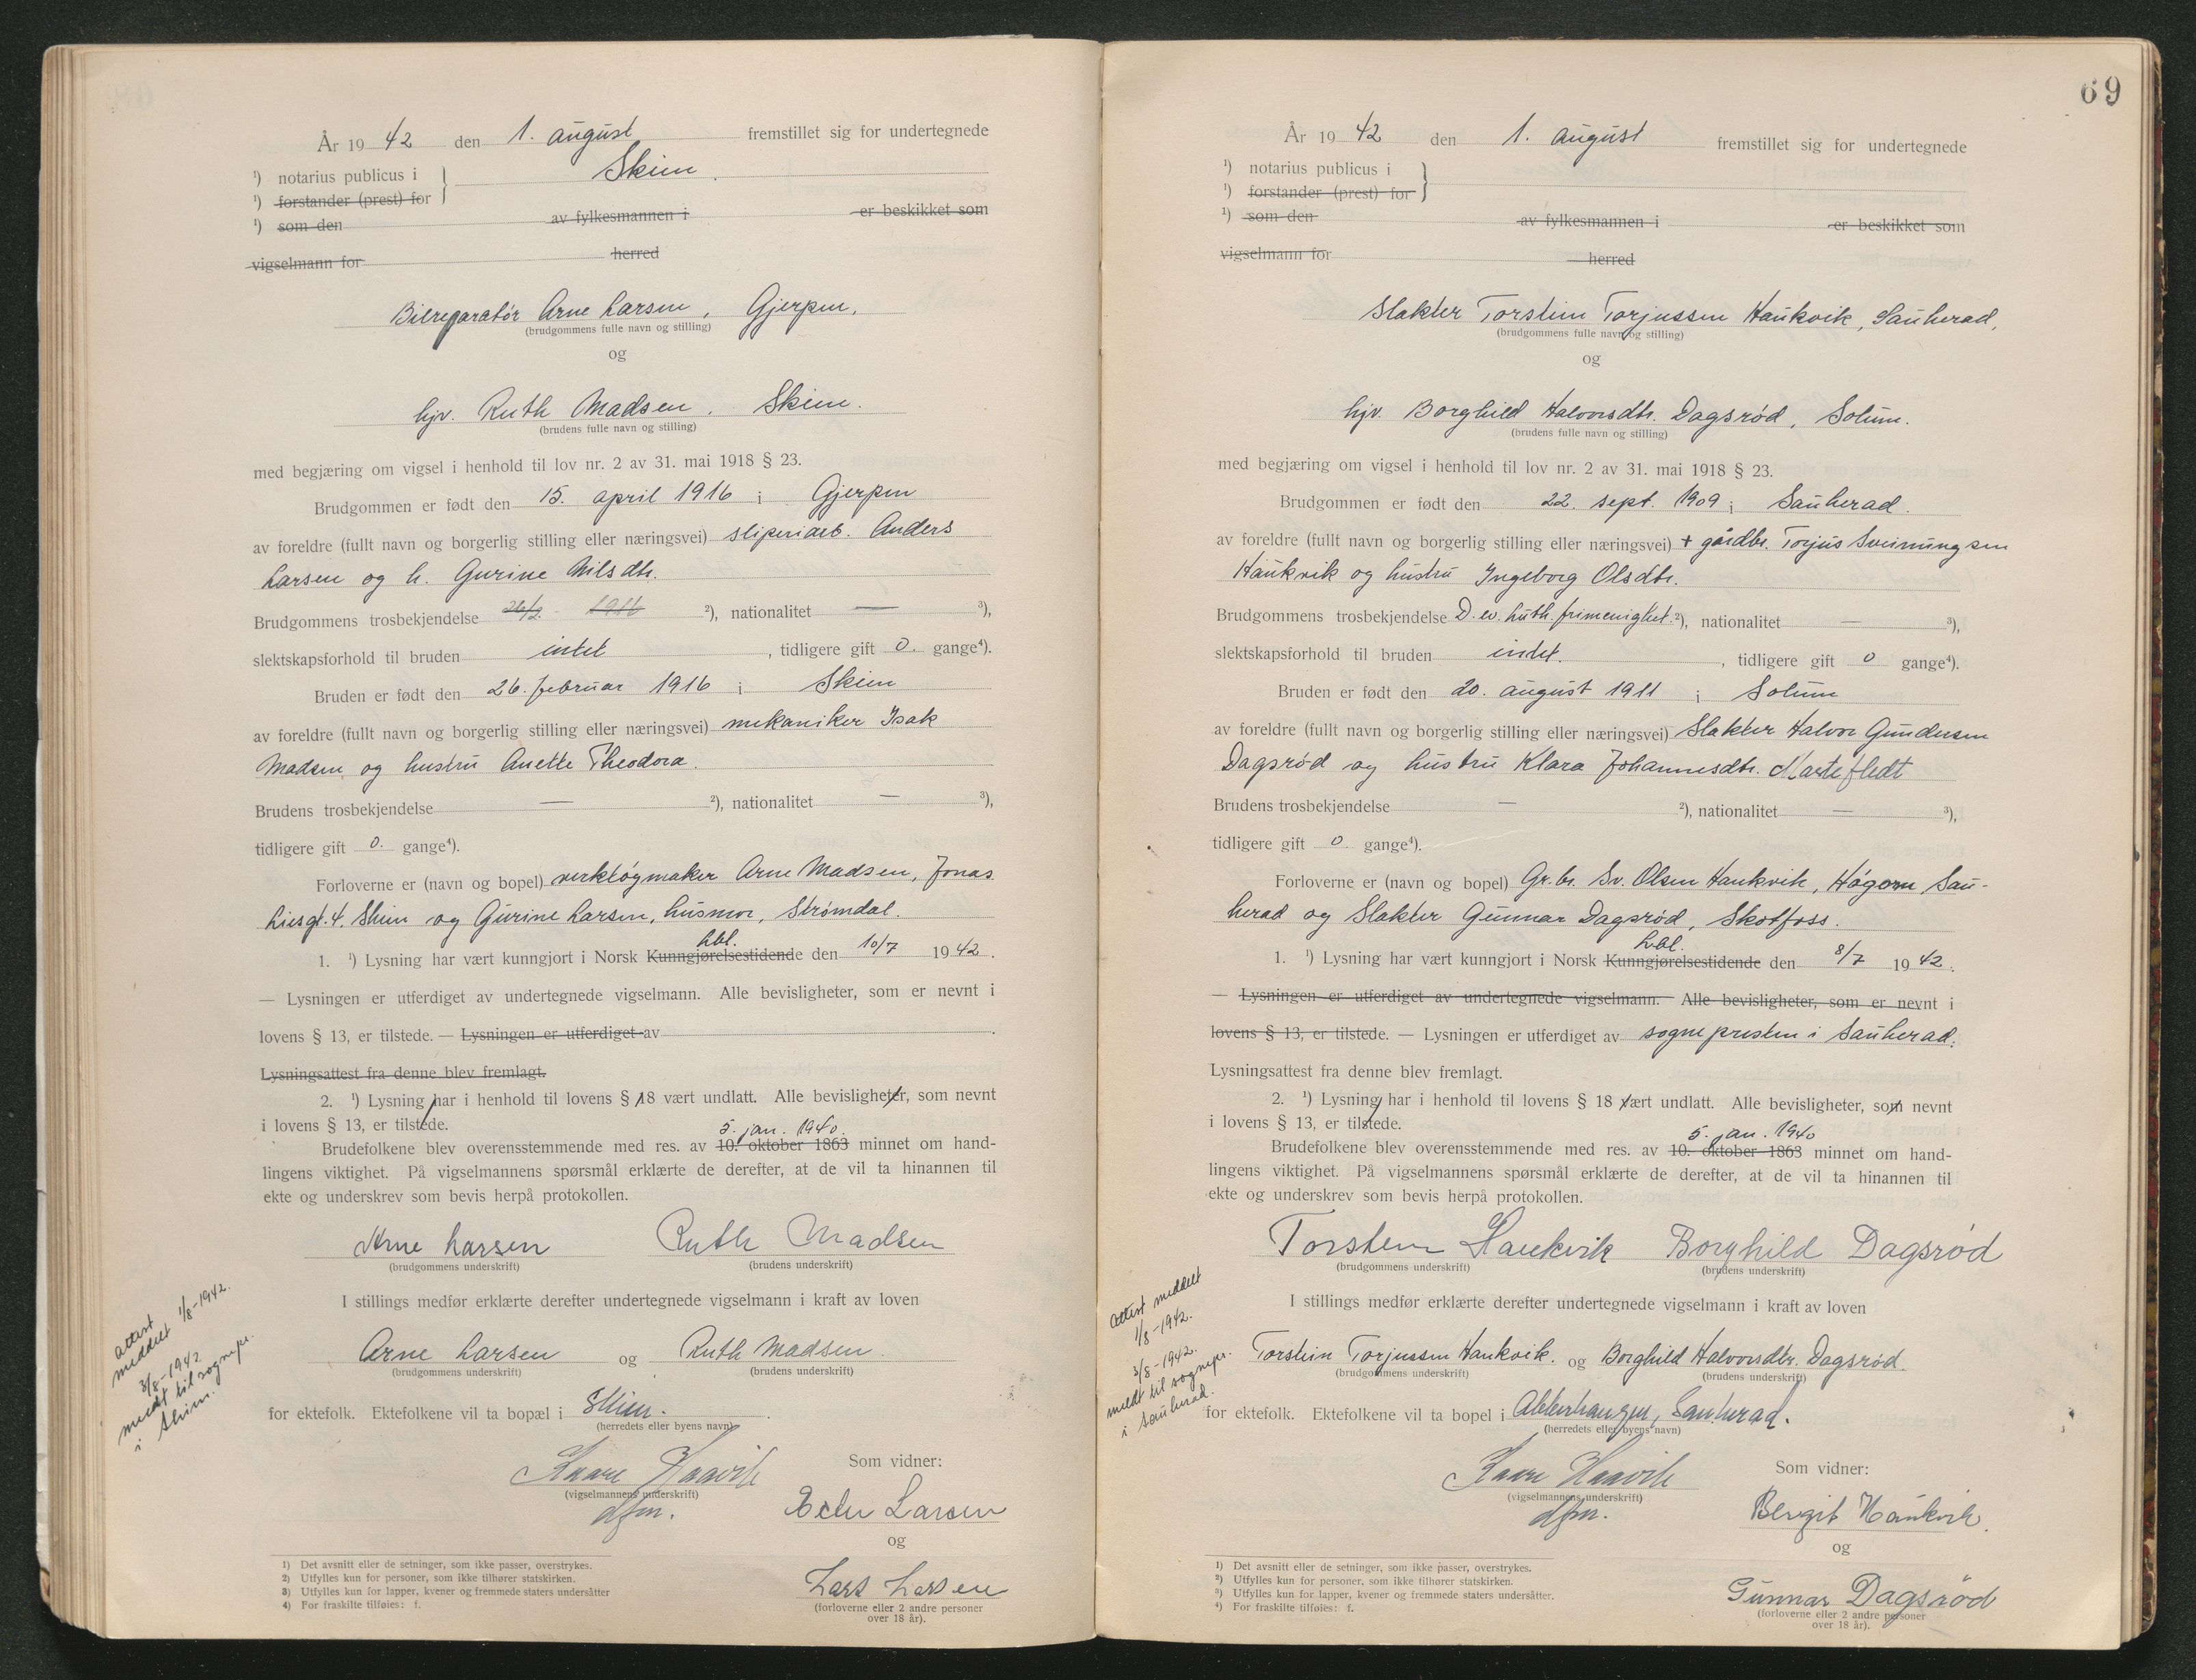 År 19 42 den 1. august fremstillet sig for undertegnede
¹) notarius publicus i } Skien.
¹) forstander (prest) for
¹) som den av fylkesmannen i er beskikket som
vigselmann for herred
Bilreparatør Arne Larsen, Gjerpen.
(brudgommens fulle navn og stilling)
og
hjv. Ruth Madsen, Skien.
(brudens fulle navn og stilling)
med begjæring om vigsel i henhold til lov nr. 2 av 31. mai 1918 § 23.
Brudgommen er født den 15. april 1916 i Gjerpen
av foreldre (fullt navn og borgerlig stilling eller næringsvei) sliperiarb. Anders
Larsen og h. Gurine Nilsdtr.
Brudgommens trosbekjendelse 26/2. 1916 ²), nationalitet — ³),
slektskapsforhold til bruden intet, tidligere gift 0. gange⁴).
Bruden er født den 26. februar 1916 i Skien
av foreldre (fullt navn og borgerlig stilling eller næringsvei) mekaniker Isak
Madsen og hustru Anette Theodora.
Brudens trosbekjendelse — ²), nationalitet — ³),
tidligere gift 0. gange⁴).
Forloverne er (navn og bopel) verktøymaker Arne Madsen, Jonas
Liesgt. 4, Skien og Gurine Larsen, husmor, Strømdal.
lbl.
1. ¹) Lysning har vært kunngjort i Norsk Kunngjørelsestidende den 10/7 1942.
— Lysningen er utferdiget av undertegnede vigselmann. Alle bevisligheter, som er nevnt i
lovens § 13, er tilstede. — Lysningen er utferdiget av .
Lysningsattest fra denne blev fremlagt.
2. ¹) Lysning har i henhold til lovens § 18 vært undlatt. Alle bevisligheter, som nevnt
i lovens § 13, er tilstede.
5. jan. 1940.
Brudefolkene blev overensstemmende med res. av 10. oktober 1863 minnet om hand-
lingens viktighet. På vigselmannens spørsmål erklærte de derefter, at de vil ta hinannen til
ekte og underskrev som bevis herpå protokollen.
Arne Larsen Ruth Madsen
(brudgommens underskrift) (brudens underskrift)
I stillings medfør erklærte derefter undertegnede vigselmann i kraft av loven
Arne Larsen og Ruth Madsen.
(brudgommens underskrift) (brudens underskrift)
for ektefolk. Ektefolkene vil ta bopæl i Skien.
(herredets eller byens navn)
attest
meddelt 1/8-1942.
3/8-1942
meldt til sognepr.
i Skien.
Kaare Haavik Som vidner:
(vigselmannens underskrift)
dfm. Larsen
og
Lars Larsen
(forloverne eller 2 andre personer
over 18 år).
1) Det avsnitt eller de setninger, som ikke passer, overstrykes.
2) Utfylles kun for personer, som ikke tilhører statskirken.
3) Utfylles kun for lapper, kvener og fremmede staters undersåtter
4) For fraskilte tilføies: f.
69
År 19 42 den 1. august fremstillet sig for undertegnede
¹) notarius publicus i }
¹) forstander (prest) for
¹) som den av fylkesmannen i er beskikket som
vigselmann for herred
Slakter Torstein Torjussen Haukvik, Sauherad,
(brudgommens fulle navn og stilling)
og
hjv. Borghild Halvorsdtr. Dagsrød, Solum.
(brudens fulle navn og stilling)
med begjæring om vigsel i henhold til lov nr. 2 av 31. mai 1918 § 23.
Brudgommen er født den 22. sept. 1909 i Sauherad.
av foreldre (fullt navn og borgerlig stilling eller næringsvei) + gårdbr. Torjus Sveinungsen
Haukvik og hustru Ingeborg Olsdtr.
Brudgommens trosbekjendelse D. ev. luth. frimenighet. ²), nationalitet — ³),
slektskapsforhold til bruden intet., tidligere gift 0 gange⁴).
Bruden er født den 20. august 1911 i Solum
av foreldre (fullt navn og borgerlig stilling eller næringsvei) Slakter Halvor Gundersen
Dagsrød og hustru Klara Johannesdtr.
Brudens trosbekjendelse — ²), nationalitet — ³),
tidligere gift 0 gange⁴).
Forloverne er (navn og bopel) Gr.br. Sv. Olsen Haukvik, Høgom, Sau-
herad og Slakter Gunnar Dagsrød, Skotfoss.
lbl.
1. ¹) Lysning har vært kunngjort i Norsk Kunngjørelsestidende den 8/7 1942.
— Lysningen er utferdiget av undertegnede vigselmann. Alle bevisligheter, som er nevnt i
lovens § 13, er tilstede. — Lysningen er utferdiget av sognepresten i Sauherad.
Lysningsattest fra denne blev fremlagt.
2. ¹) Lysning har i henhold til lovens § 18 vært undlatt. Alle bevisligheter, som nevnt
i lovens § 13, er tilstede.
5. jan. 1940
Brudefolkene blev overensstemmende med res. av 10. oktober 1863 minnet om hand-
lingens viktighet. På vigselmannens spørsmål erklærte de derefter, at de vil ta hinannen til
ekte og underskrev som bevis herpå protokollen.
Torstein Haukvik Borghild Dagsrød
(brudgommens underskrift) (brudens underskrift)
I stillings medfør erklærte derefter undertegnede vigselmann i kraft av loven
Torstein Torjussen Haukvik. og Borghild Halvorsdtr. Dagsrød.
(brudgommens underskrift) (brudens underskrift)
for ektefolk. Ektefolkene vil ta bopel i Akkerhaugen, Sauherad.
(herredets eller byens navn)
attest meddelt
1/8-1942.
3/8-1942.
meldt til sognepr.
i Sauherad.
Kaare Haavik Som vidner:
(vigselmannens underskrift)
dfm. Bergit Haukvik.
og
Gunnar Dagsrød
(forloverne eller 2 andre personer
over 18 år).
¹) Det avsnitt eller de setninger, som ikke passer, overstrykes.
²) Utfylles kun for personer, som ikke tilhører statskirken.
³) Utfylles kun for lapper, kvener og fremmede staters undersåtter.
⁴) For fraskilte tilføies: f.